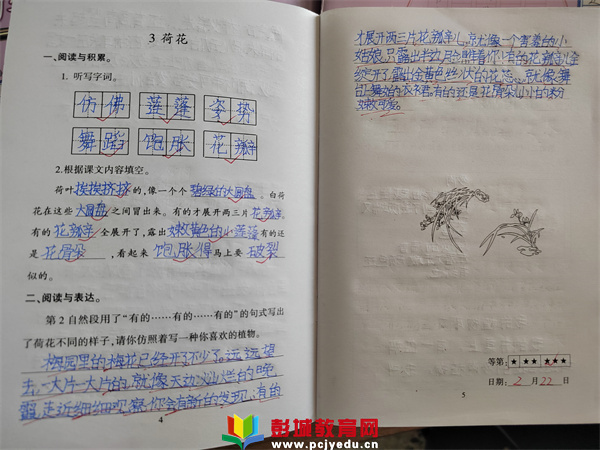 3 荷花
一、阅读与积累。
1. 听写字词。
仿佛 莲蓬 姿势
舞蹈 饱胀 花瓣
2.根据课文内容填空。
荷叶挨挨挤挤的,像一个个碧绿的大圆盘。白荷
花在这些大圆盘之间冒出来。有的才展开两三片花瓣
有的花瓣全展开了,露出嫩黄色的小莲蓬有的还
是花骨朵,看起来饱胀得马上要破裂
似的。
二、阅读与表达。
第2自然段用了“有的……有的……有的”的句式写出
了荷花不同的样子,请你仿照着写一种你喜欢的植物。
梅园里的梅花已经开了不少了。远远望
去,一大片一大片的,就像天边灿烂的晚
霞,走近细细观察,你会有新的发现,有的
4
才展开两三片花瓣儿,就像一个害羞的小
姑娘,只露出半边脸瞧着你,有的花瓣儿全
绽开了,露出金黄色的花蕊,就像舞
的衣裙。有的还是花骨朵
嫩可爱。
等第:★★★★★
日期:2月22日
5
彭城教育网
www.pcjyedu.cn